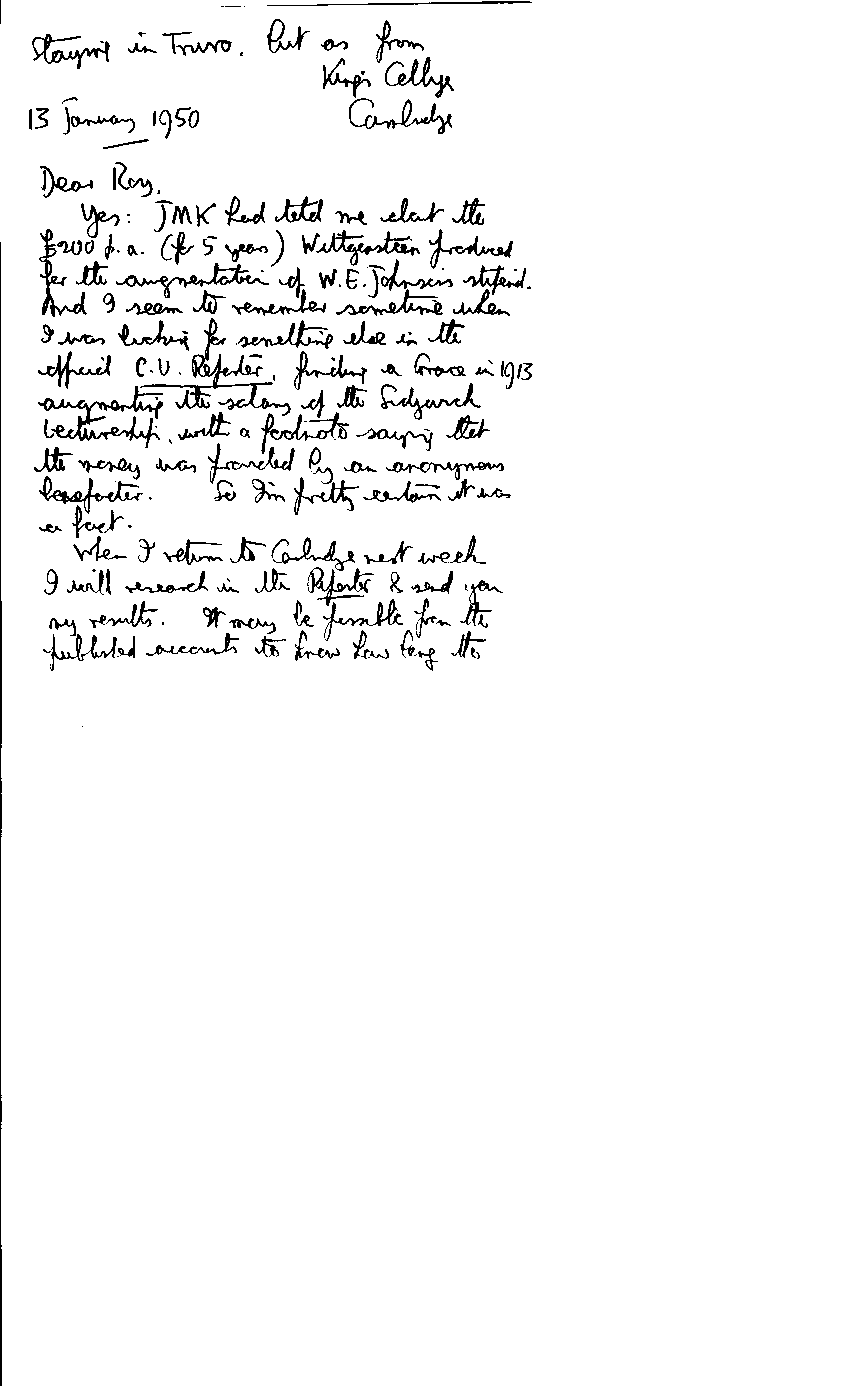 Staying in Truro. But as from
King's College
Cambridge
13 January 1950
Dear Roy,
Yes: JMK had told me about the
£200 p.a. (for 5 years) Wittgenstein produced
for the augmentation of W.E. Johnson's stipend.
And I seem to remember sometime when
I was looking for something else in the
official C.U. Reporter, finding a Grace in 1913
augmenting the salary of the Sidgwick
Lectureship, with a footnote saying that
the money was provided by an anonymous
benefactor. So I'm pretty certain it was
a fact.
When I return to Cambridge next week
I will research in the Reporter & send you
my results. It may be possible from the
published accounts to know how long the